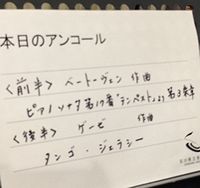 本日のアンコール
<前半> ベートーヴェン 作曲
ピアノソナタ第17番"テンペスト"より第3楽章
<後半> ゲーゼ 作曲
タンゴ・ジェラシー